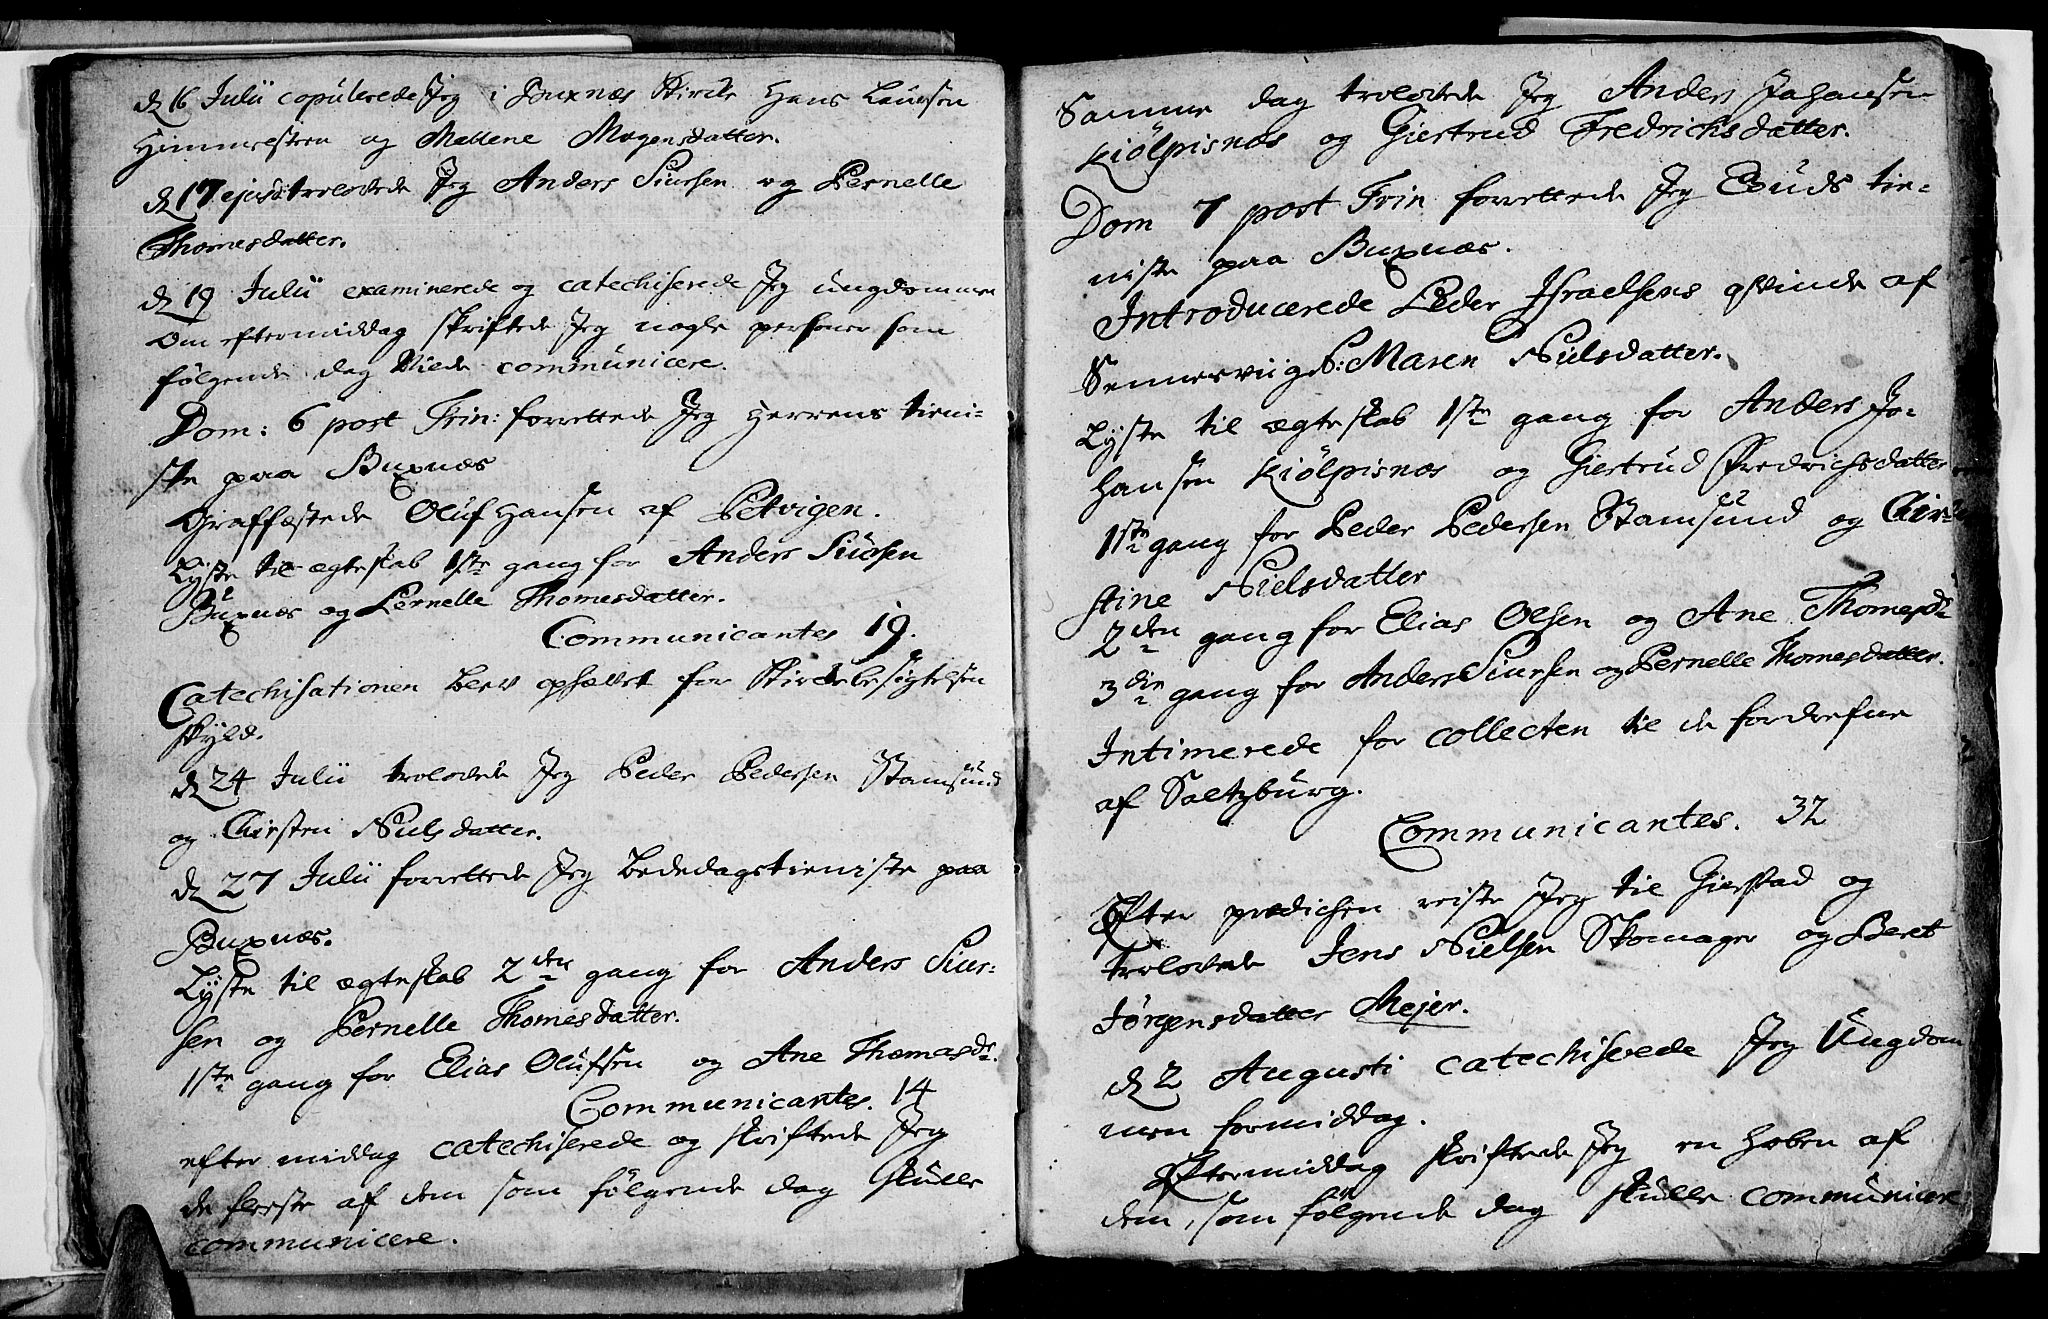 d 16 Julii copulerede Jeg i Buxnæs Kircke Hans Laursen
Himmesteen og Mallene Mogensdatter.
d 17 ejusd: trolovede Jeg Anders Siursen og Pernelle
Thomesdatter.
d 19 Julii examinerede og catechiserede Jeg ungdommen
Om eftermiddag skriftede Jeg nogle personer som
følgende dag vilde communicere.
Dom: 6 post Trin: forrettede Jeg Herrens tieni-
ste paa Buxnæs
Graffæstede Oluf Hansen af Petvigen.
Lyste til ægteskab 1ste gang for Anders Siursen
Buxnæs og Pernelle Thomesdatter.
Communicantes 19.
Catechisationen blev ophævet for Kirckebesigtelsen
skyld.
d 24 Julii trolovede Jeg Peder Pedersen Stamsund
og Chirsten Nielsdatter.
d 27 Julii forrettede Jeg bededagstieniste paa
Buxnæs.
Lyste til ægteskab 2den gang for Anders Siur-
sen og Pernelle Thomesdatter.
1ste gang for Elias Olufsen og Ane Thomasdr.
Communicantes. 14
efter middag catechiserede og skriftede Jeg
de fleeste af dem som følgende dag skulle
communicere.
Samme dag trolovede Jeg Anders Johansen
Kiölpisnæs og Giertrud Fredrichsdatter.
Dom 7 post Trin forrettede Jeg Guds tie-
niste paa Buxnæs.
Introducerede Peder Israelsens qvinde af
Sennesviig N: Maren Nielsdatter.
Lyste til ægteskab 1ste gang for Anders Jo-
hansen Kiölpisnæs og Giertrud Fredrichsdatter
1ste gang for Peder Pedersen Stamsund og Chir-
stine Nielsdatter
2den gang for Elias Olsen og Ane Thomesdr
3die gang for Anders Siursen og Pernelle Thomesdatter.
Intimerede for collecten til de fordrefne
af Saltzburg.
Communicantes. 32
Efter prædichen reiste Jeg til Gierstad og
trolovede Jens Nielsen Skomager og Beret
Jørgensdatter Mejer.
d 2 Augusti catechiserede Jeg Ungdom
men formiddag.
Eftermiddag skriftede Jeg en hoben af
dem, som følgende dag skulle communicere